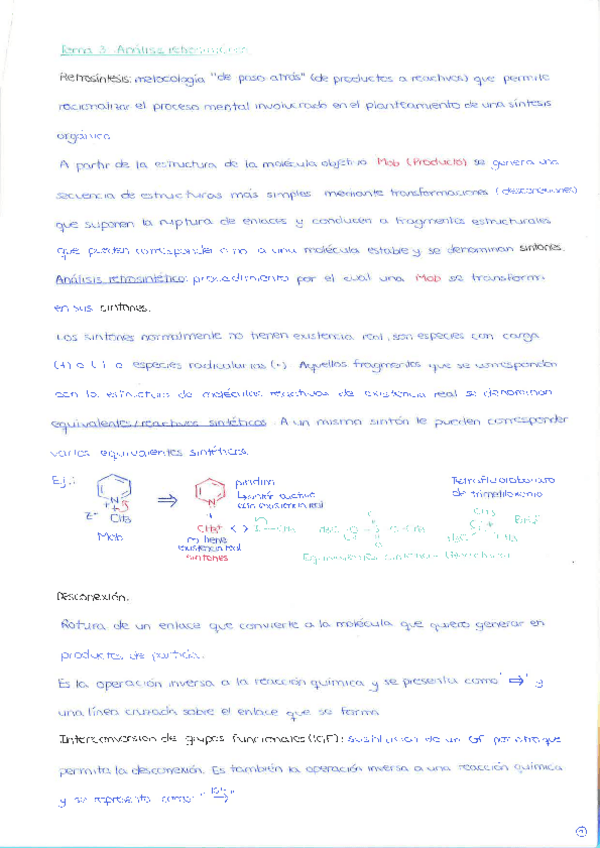 Tema 3: Análisis retrosintético
Retrosíntesis: metodología "de paso atrás" (de productos a reactivos) que permite
racionalizar el proceso mental involucrado en el planteamiento de una síntesis
orgánica
A partir de la estructura de la molécula objetivo Mob (Producto) se genera una
secuencia de estructuras más simples mediante transformaciones (desconexiones)
que suponen la ruptura de enlaces y conducen a fragmentos estructurales
que pueden corresponder o no a una molécula estable y se denominan sintones.
Análisis retrosintético: procedimiento por el cual una Mob se transforma
en sus sintones.
Los sintones normalmente no tienen existencia real, son especies con carga
(+) o (-) o especies radicalarias (·) Aquellos fragmentos que se corresponden
con la estructura de moléculas reactivas de existencia real se denominan
equivalentes/reactivos sintéticos. A un mismo sintón le pueden corresponder
varios equivalentes sintéticos.
Ej.:
N
+
Z-
CH3
Mob
⇒
N
+
CH3+
no tiene
existencia real
sintones
piridina
con existencia real
< > I-CH3
Tetrafluoroborato
de trimetiloxonio
CH3
BF4-
Desconexión.
Rotura de un enlace que convierte a la molécula que quiero generar en
productos de partida.
Es la operación inversa a la reacción química y se presenta como '⇒' y
una línea cruzada sobre el enlace que se forma
Interconversión de grupos funcionales (IGF): sustitución de un GF por otro que
permita la desconexión. Es también la operación inversa a una reacción química
y se representa como "IGF⇒"
1